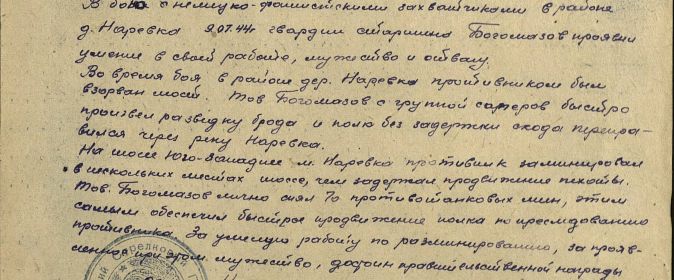 В бою с немецко-фашистскими захватчиками в районе
д. Наревка 9.07.44г гвардии старшина Богомазов проявил
умение в своей работе, мужество и отвагу.
Во время боя в районе дер. Наревка противником был
взорван мост. Тов Богомазов с группой саперов быстро
произвел разведку брода и полк без задержки сходу перепра-
вился через реку Наревка.
На шоссе Юго-Западнее м. Наревка противник заминировал
в нескольких местах шоссе, чем задержал продвижение пехоты.
Тов. Богомазов лично снял 70 противотанковых мин, этим
самым обеспечил быстрое продвижение полка по преследованию
противника. За умелую работу по разминированию, за прояв-
ленное при этом мужество, достоин правительственной награды